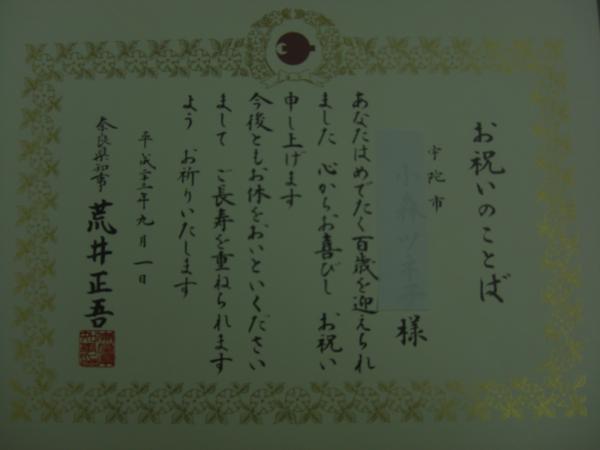 お祝いのことば
宇陀市
様
あなたはめでたく百歳を迎えられ
ました 心からお喜びし お祝い
申し上げます
今後ともお体をおいといください
まして ご長寿を重ねられます
よう お祈りいたします
平成二十三年九月一日
奈良県知事 荒井正吾